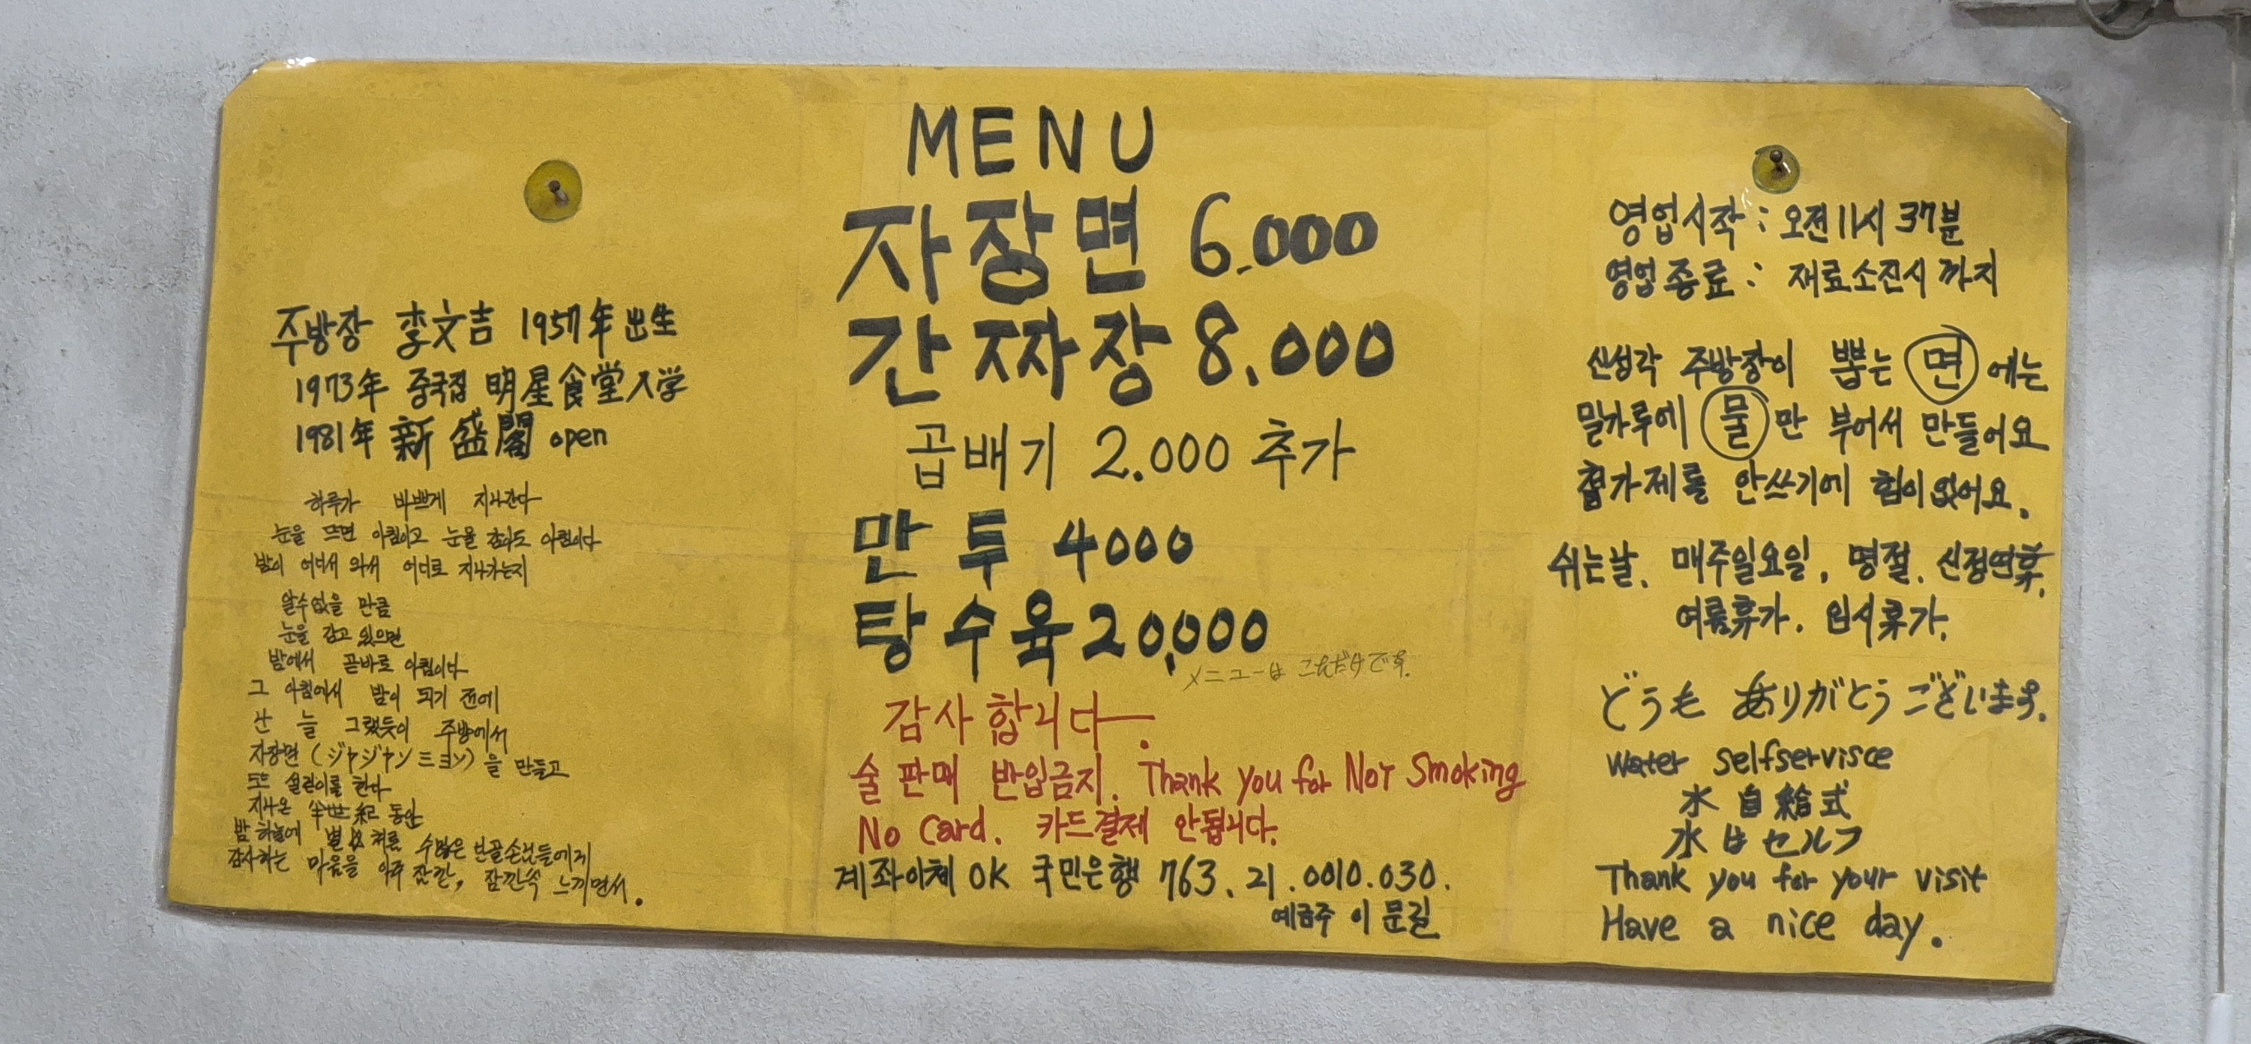 주방장 李文吉 1957年 出生
1973年 중국집 明星食堂 入学
1981年 新盛閣 open
하루가 바쁘게 지나간다
눈을 뜨면 아침이고 눈을 감아도 아침이다
밤이 어디서 와서 어디로 지나가는지
알수없을 만큼
눈을 감고 있으면
밤에서 곧바로 아침이다
그 아침에서 밤이 되기 전에
난 늘 그랬듯이 주방에서
자장면 (ジャジャンミョン)을 만들고
또 설겆이를 한다
지나온 半世紀 동안
밤 하늘에 별빛처럼 수많은 단골손님들에게
감사하는 마음을 아주 잠깐, 잠깐씩 느끼면서.
MENU
자장면 6.000
간짜장 8.000
곱배기 2.000 추가
만두 4000
탕수육 20,000
メニューは これだけです.
감사합니다.
술 판매 반입금지. Thank you for Not Smoking
No Card. 카드결제 안됩니다.
계좌이체 OK 국민은행 763.21.0010.030.
예금주 이문길
영업시작 : 오전 11시 37분
영업종료 : 재료소진시 까지
신성각 주방장이 뽑는 면에는
밀가루에 물만 부어서 만들어요
첨가제를 안쓰기에 힘이없어요.
쉬는날. 매주일요일, 명절. 신정연휴.
여름휴가. 임시휴가.
どうも ありがとう ございます.
water selfservisce
水 自給式
水は セルフ
Thank you for your visit
Have a nice day.